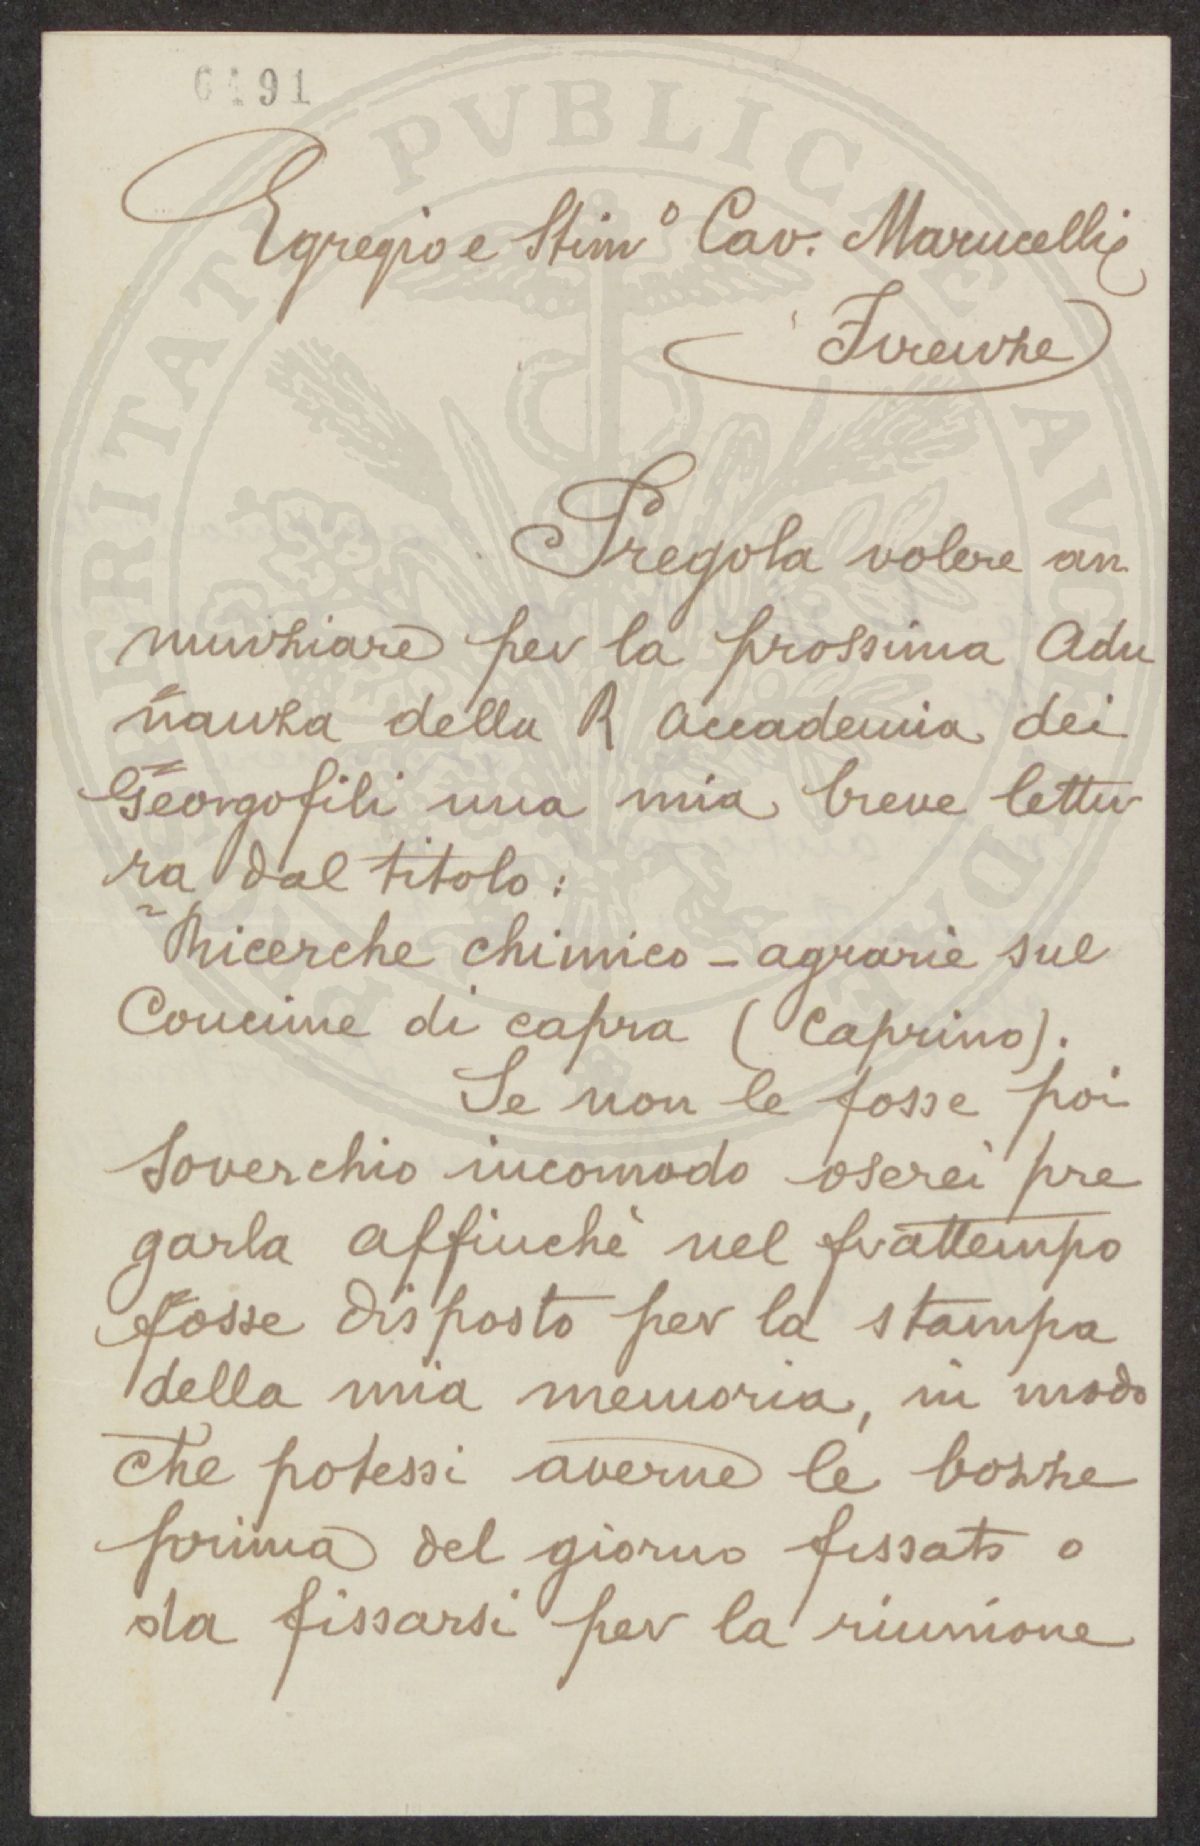 6491
Egregio e Stimo Cav. Marucelli
Firenze
Pregola volere an
nunziare per la prossima Adu
nanza della R Accademia dei
Georgofili una mia breve lettu
ra dal titolo:
Ricerche chimico-agrarie sul
Concime di capra (Caprino).
Se non le fosse poi
soverchio incomodo oserei pre
garla affinchè nel frattempo
fosse disposto per la stampa
della mia memoria, in modo
che potessi averne le bozze
prima del giorno fissato o
da fissarsi per la riunione
PROSPERITATI PVBLICAE AVGENDAE